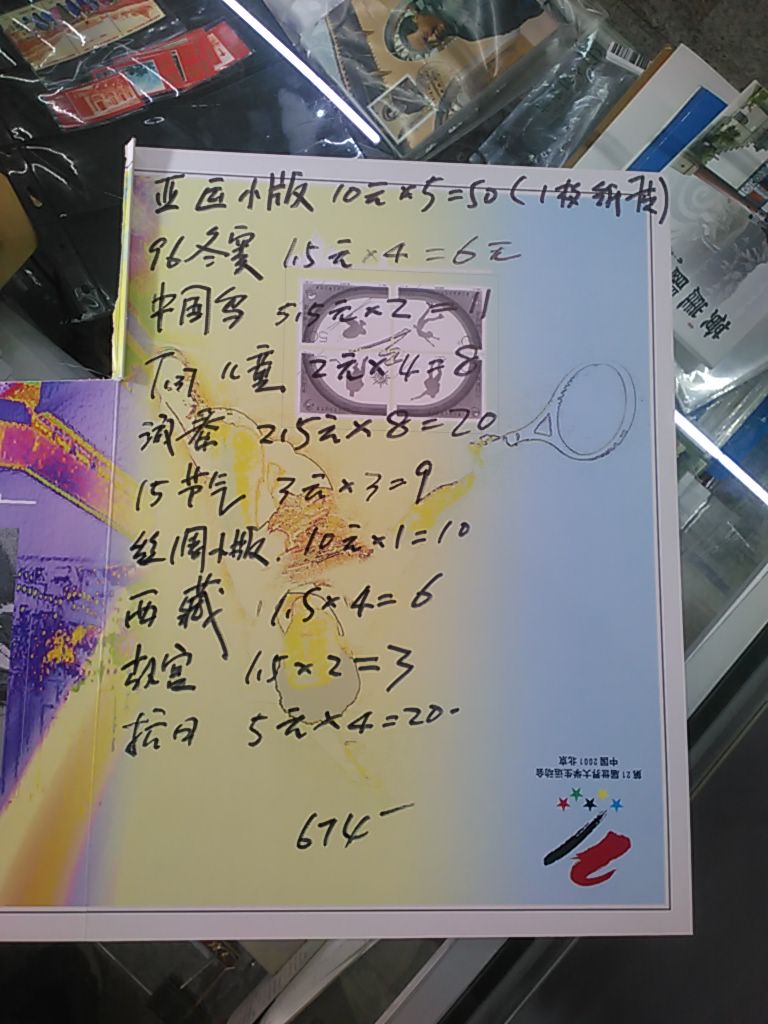 亚运小版 10元×5=50(1枚纸歪)
96冬奥 1.5元×4=6元
中国鸟 5.5元×2=11
T.137 儿童 2元×4=8
2.5元×8=20
15节气 3元×3=9
丝绸小版 10元×1=10
西藏 1.5×4=6
故宫 1.5×2=3
抗日 5元×4=20-
674-
第21届世界大学生运动会
中国 2001 北京